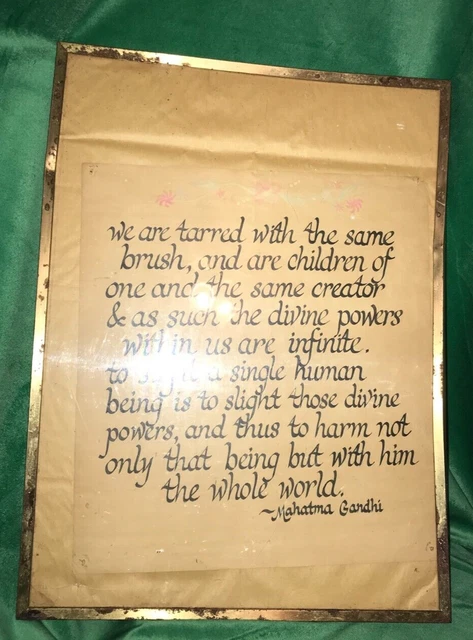 we are tarred with the same
brush, and are children of
one and the same creator
& as such the divine powers
within us are infinite.
to slight a single human
being is to slight those divine
powers, and thus to harm not
only that being but with him
the whole world.
~Mahatma Gandhi